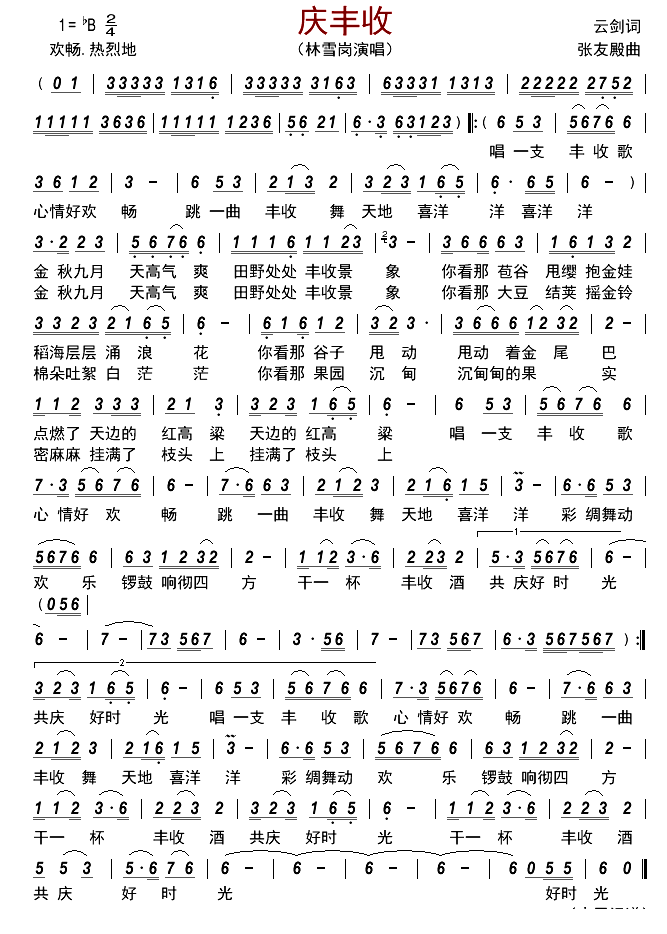 庆丰收
1=♭B 2/4
云剑词
欢畅.热烈地
(林雪岗演唱)
张友殿曲
( 0 1 | 33333 1316 | 33333 3163 | 63331 1313 | 22222 2752 |
11111 3636 | 11111 1236 | 56 21 | 6·3 63123 ) ‖:( 6 53 | 5676 6 |
唱 一支 丰 收 歌
3 6 1 2 | 3 - | 6 53 | 2 13 2 | 323 165 | 6· 65 | 6 - ) |
心情好欢 畅 跳 一曲 丰收 舞 天地 喜洋 洋 喜洋 洋
3·2 2 3 | 5 6 76 6 | 1116 1 123 | 3 - | 36663 | 16132 |
金 秋九月 天高气 爽 田野处处 丰收景 象 你看那 苞谷 甩缨 抱金娃
金 秋九月 天高气 爽 田野处处 丰收景 象 你看那 大豆 结荚 摇金铃
3323 2165 | 6 - | 616 12 | 32 3· | 3666 1232 | 2 - |
稻海层层 涌 浪 花 你看那 谷子 甩 动 甩动 着金 尾 巴
棉朵吐絮 白 茫 茫 你看那 果园 沉 甸 沉甸甸的果 实
112 333 | 21 3 | 323 165 | 6 - | 6 53 | 5676 6 |
点燃了 天边的 红高 粱 天边的 红高 粱 唱 一支 丰 收 歌
密麻麻 挂满了 枝头 上 挂满了 枝头 上
7·3 5676 | 6 - | 7·6 63 | 2123 2 | 216 15 | 3 - | 6·6 53 |
心 情好 欢 畅 跳 一曲 丰收 舞 天地 喜洋 洋 彩 绸舞动
1
5676 6 | 63 1232 | 2 - | 112 3·6 | 223 2 | 5·3 5676 | 6 |
欢 乐 锣鼓 响彻四 方 干一 杯 丰收 酒 共 庆好 时 光
( 056 |
6 - | 7 - | 73 567 | 6 - | 3· 56 | 7 - | 7373 767 | 6·3 567567 ) :‖
2
323 165 | 6 - | 6 53 | 5676 6 | 7·3 5676 | 6 - | 7·6 63 |
共庆 好时 光 唱 一支 丰 收 歌 心 情好 欢 畅 跳 一曲
212 3 | 216 15 | 3 - | 6·6 53 | 5676 6 | 63 1232 | 2 - |
丰收 舞 天地 喜洋 洋 彩 绸舞动 欢 乐 锣鼓 响彻四 方
112 3·6 | 223 2 | 323 165 | 6 - | 112 3·6 | 223 2 |
干一 杯 丰收 酒 共庆 好时 光 干一 杯 丰收 酒
5 5 3 | 5·6 76 | 6 - | 6 - | 6 - | 6 - | 6 055 | 6 0 ‖
共 庆 好 时 光 好时 光